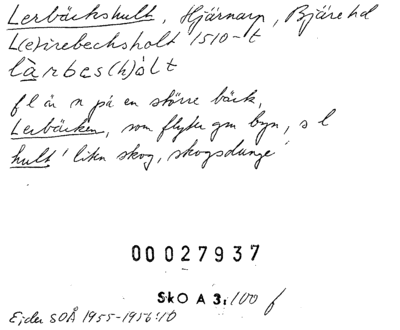 Lerbäckshult, Hjärnarp, Bjäre hd
L(e)irebechsholt 1510-t
làrbæs(h)ált
fl ån n på en större bäck,
Lerbäcken, som flyter gm byn, s l
hult 'liten skog, skogsdunge'
00027937
SkO A 3: 100 f
Ejder SOÅ 1955-1956:10